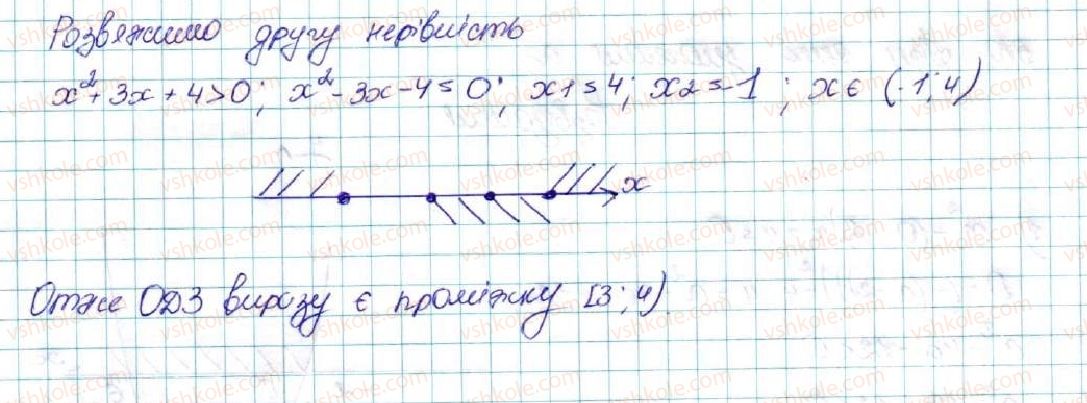 Розвяжимо другу нерівність
x²+3x+4>0; x²-3x-4=0; x1=4; x2=-1; xє (-1;4)
x
Отже ОДЗ виразу є проміжку [3;4)